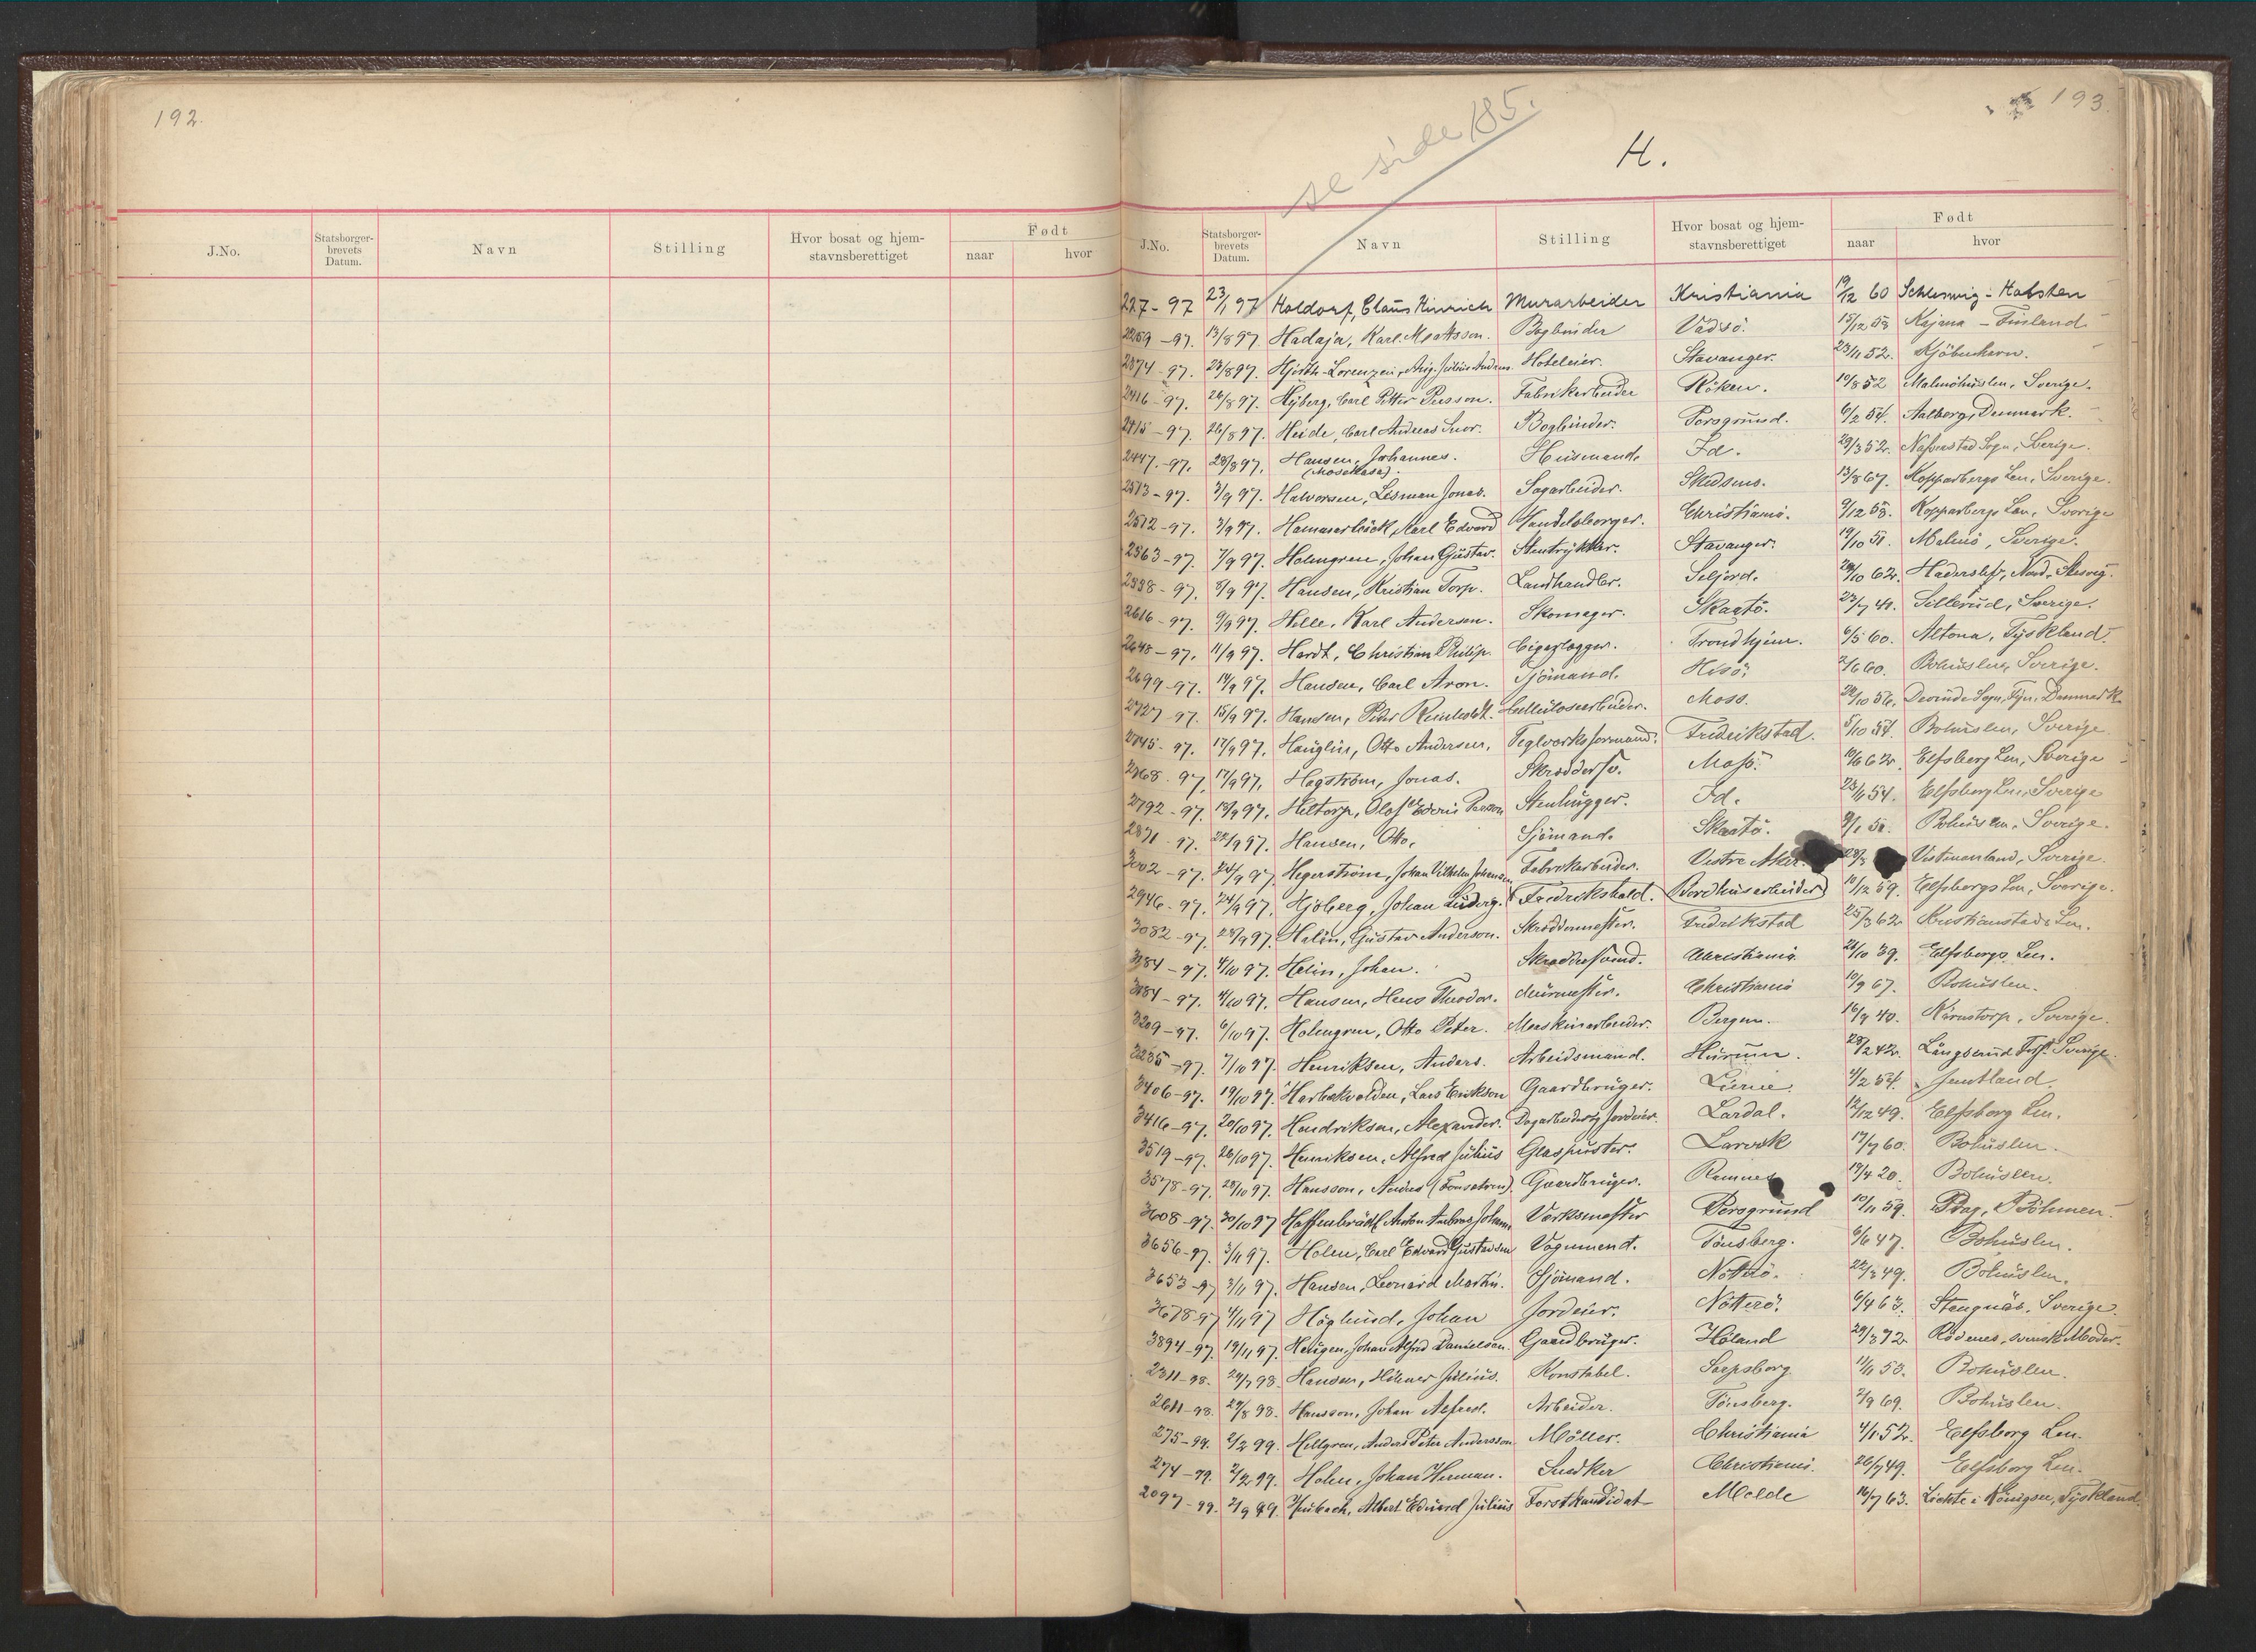 192.
J.No.
Statsborger-
brevets
Datum.
Navn
Stilling
Hvor bosat og hjem-
stavnsberettiget
Født
naar
hvor
193.
se side 185.
H.
J.No.
Statsborger-
brevets
Datum.
Navn
Stilling
Hvor bosat og hjem-
stavnsberettiget
Født
naar
hvor
227-97 23/1 97 Holdorf, Claus Hinrich Murarbeider Kristiania 19/12 60 Schleswig-Holsten
2259-97. 13/8 97. Hadaja, Karl Mattsson. Bogbinder Vadsö. 15/12 53 Kajana - Finland.
2374-97. 23/8 97. Hjorth-Lorenzen, Hoteleier. Stavanger. 23/11 52. Kjöbenhavn.
2416-97. 26/8 97. Nyberg, Carl Petter Persson. Fabrikarbeider Röken. 10/8 52 Malmöhuslen, Sverige.
2415-97. 26/8 97. Heide, Carl Andreas Bogbinder. Porsgrund. 6/2 54. Aalborg, Danmark.
2447-97. 28/8 97. Hansen, Johannes. Husmand. Id. 29/3 52. Sogn, Sverige.
(Mosekasa).
2513-97. 3/9 97. Halvorsen, Lisman Jonas. Sagarbeider. Skedsmo. 13/8 67. Kopparbergs Len, Sverige.
2512-97. 3/9 97. Karl Edvard Handelsborger. Christiania. 9/12 58. Kopparbergs Len, Sverige
2563-97. 7/9 97. Holmgren, Johan Gustav. Stentrykker. Stavanger. 19/10 51. Malmö, Sverige.
2598-97. 8/9 97. Hansen, Kristian Torp. Landhandler. Seljord. 29/10 62. Haderslef, Nord-Slesvig.
2616-97. 9/9 97. Helle, Karl Andersen. Skomager. Skaatö. 23/7 41. Sillerud, Sverige.
2648-97. 11/9 97. Hardt, Christian Philip. Trondhjem. 6/5 60. Altona, Tyskland.
2699-97. 14/9 97. Hansen, Carl Aron. Sjömand. Hisö. 2/6 60. Bohuslen, Sverige.
2727-97. 15/9 97. Hansen, Peter Reinholdt. Cellulosearbeider. Moss. Sogn, Fyn, Danmark
2745-97. 17/9 97. Hauglin, Otto Andersen. Teglverksformand. Fredrikstad. 5/10 54. Bohuslen, Sverige.
2768-97. 17/9 97. Hagström, Jonas. Skrædder. Moss. 19/6 62. Elfsborg Len, Sverige
2792-97. 18/9 97. Heltorp, Olof Persson Stenhugger. Id. 23/11 54. Elfsborg Len, Sverige
2871-97. 22/9 97. Hansen, Otto. Sjömand. Skaatö. 9/1 51. Bohuslen, Sverige.
3002-97. 24/9 97. Hegerström, Johan Vilhelm Johansen Fabrikarbeider. Vestre Aker. Vestmanland, Sverige.
2946-97. 24/9 97. Hjöberg, Johan Ludvig. Fredrikshald. Bordhusarbeider 10/12 59. Elfsborgs Len, Sverige.
3082-97. 28/9 97. Halin, Gustav Anderson. Skræddermester. Fredrikstad 25/3 62. Kristianstads Len.
3184-97. 4/10 97. Helin, Johan. Skræddersvend. Christiania 21/10 39. Elfsborgs Len.
3184-97. 4/10 97. Hansen, Hans Theodor. Murmester. Christiania 10/9 67. Bohuslen.
3209-97. 6/10 97. Holmgren, Otto Peter. Maskinarbeider. Bergen. 16/9 40. Sverige.
3235-97. 7/10 97. Henriksen, Anders. Arbeidsmand. Hurum. 28/2 42. Långserud Sverige.
3406-97. 19/10 97. Lars Erikson Gaardbruger. Lierne. 4/2 54. Jemtland.
3416-97. 20/10 97. Hendriksen, Alexander. Dagarbeider og Jordeier. Lardal. 12/12 49. Elfsborg Len.
3519-97. 26/10 97. Henriksen, Alfred Julius Glaspuster. Larvik 17/7 60. Bohuslen.
3578-97. 28/10 97. Hansson, Gaardbruger. Ramnes 19/4 20. Bohuslen.
3608-97. 30/10 97 Anton Ambros Johann Verksmester Porsgrund 10/11 59. Prag, Böhmen.
3656-97. 3/11 97. Holm, Carl Edvard Gustavsen Vognmand. Tönsberg. 6/6 47. Bohuslen.
3653-97 3/11 97. Hansen, Leonard Martin. Sjömand. Nötterö. 22/3 49. Bohuslen.
3678-97 4/11 97 Höglund, Johan Jordeier. Nötterö. 6/4 63. Sverige.
3894-97. 19/11 97. Haugen, Johan Alfred Danielsen. Gaardbruger. Höland 29/3 72. Rödenes, svensk Moder.
2311-98. 29/7 98. Hansen, Hilmer Julius. Konstabel. Sarpsborg 11/11 53. Bohuslen.
2611-98. 29/8 98. Hansson, Johan Alfred. Arbeider. Tönsberg. 2/9 69. Bohuslen.
275-99. 2/2 99. Hellgren, Anders Peter Andersson Möller. Christiania 4/1 52. Elfsborg Len.
274-99. 2/2 99. Holm, Johan Herman. Snedker Christiania. 26/7 49. Elfsborg Len.
2097-99. 2/9 99. Albert Eduard Julius Forstkandidat Molde 16/7 63. Lichte i Königsee, Tyskland.